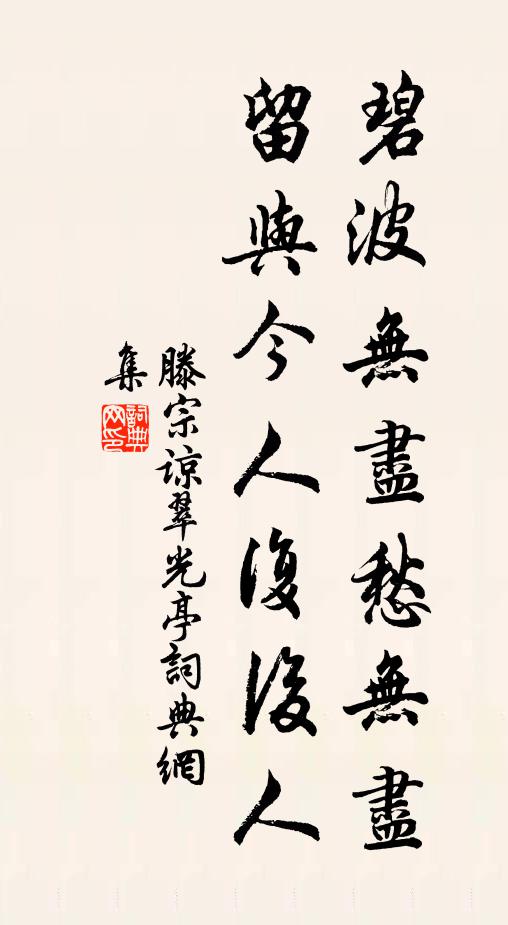 碧波無盡愁無盡
留與今人復後人
滕宗谅翠光亭詞典網
集
詞典
网印